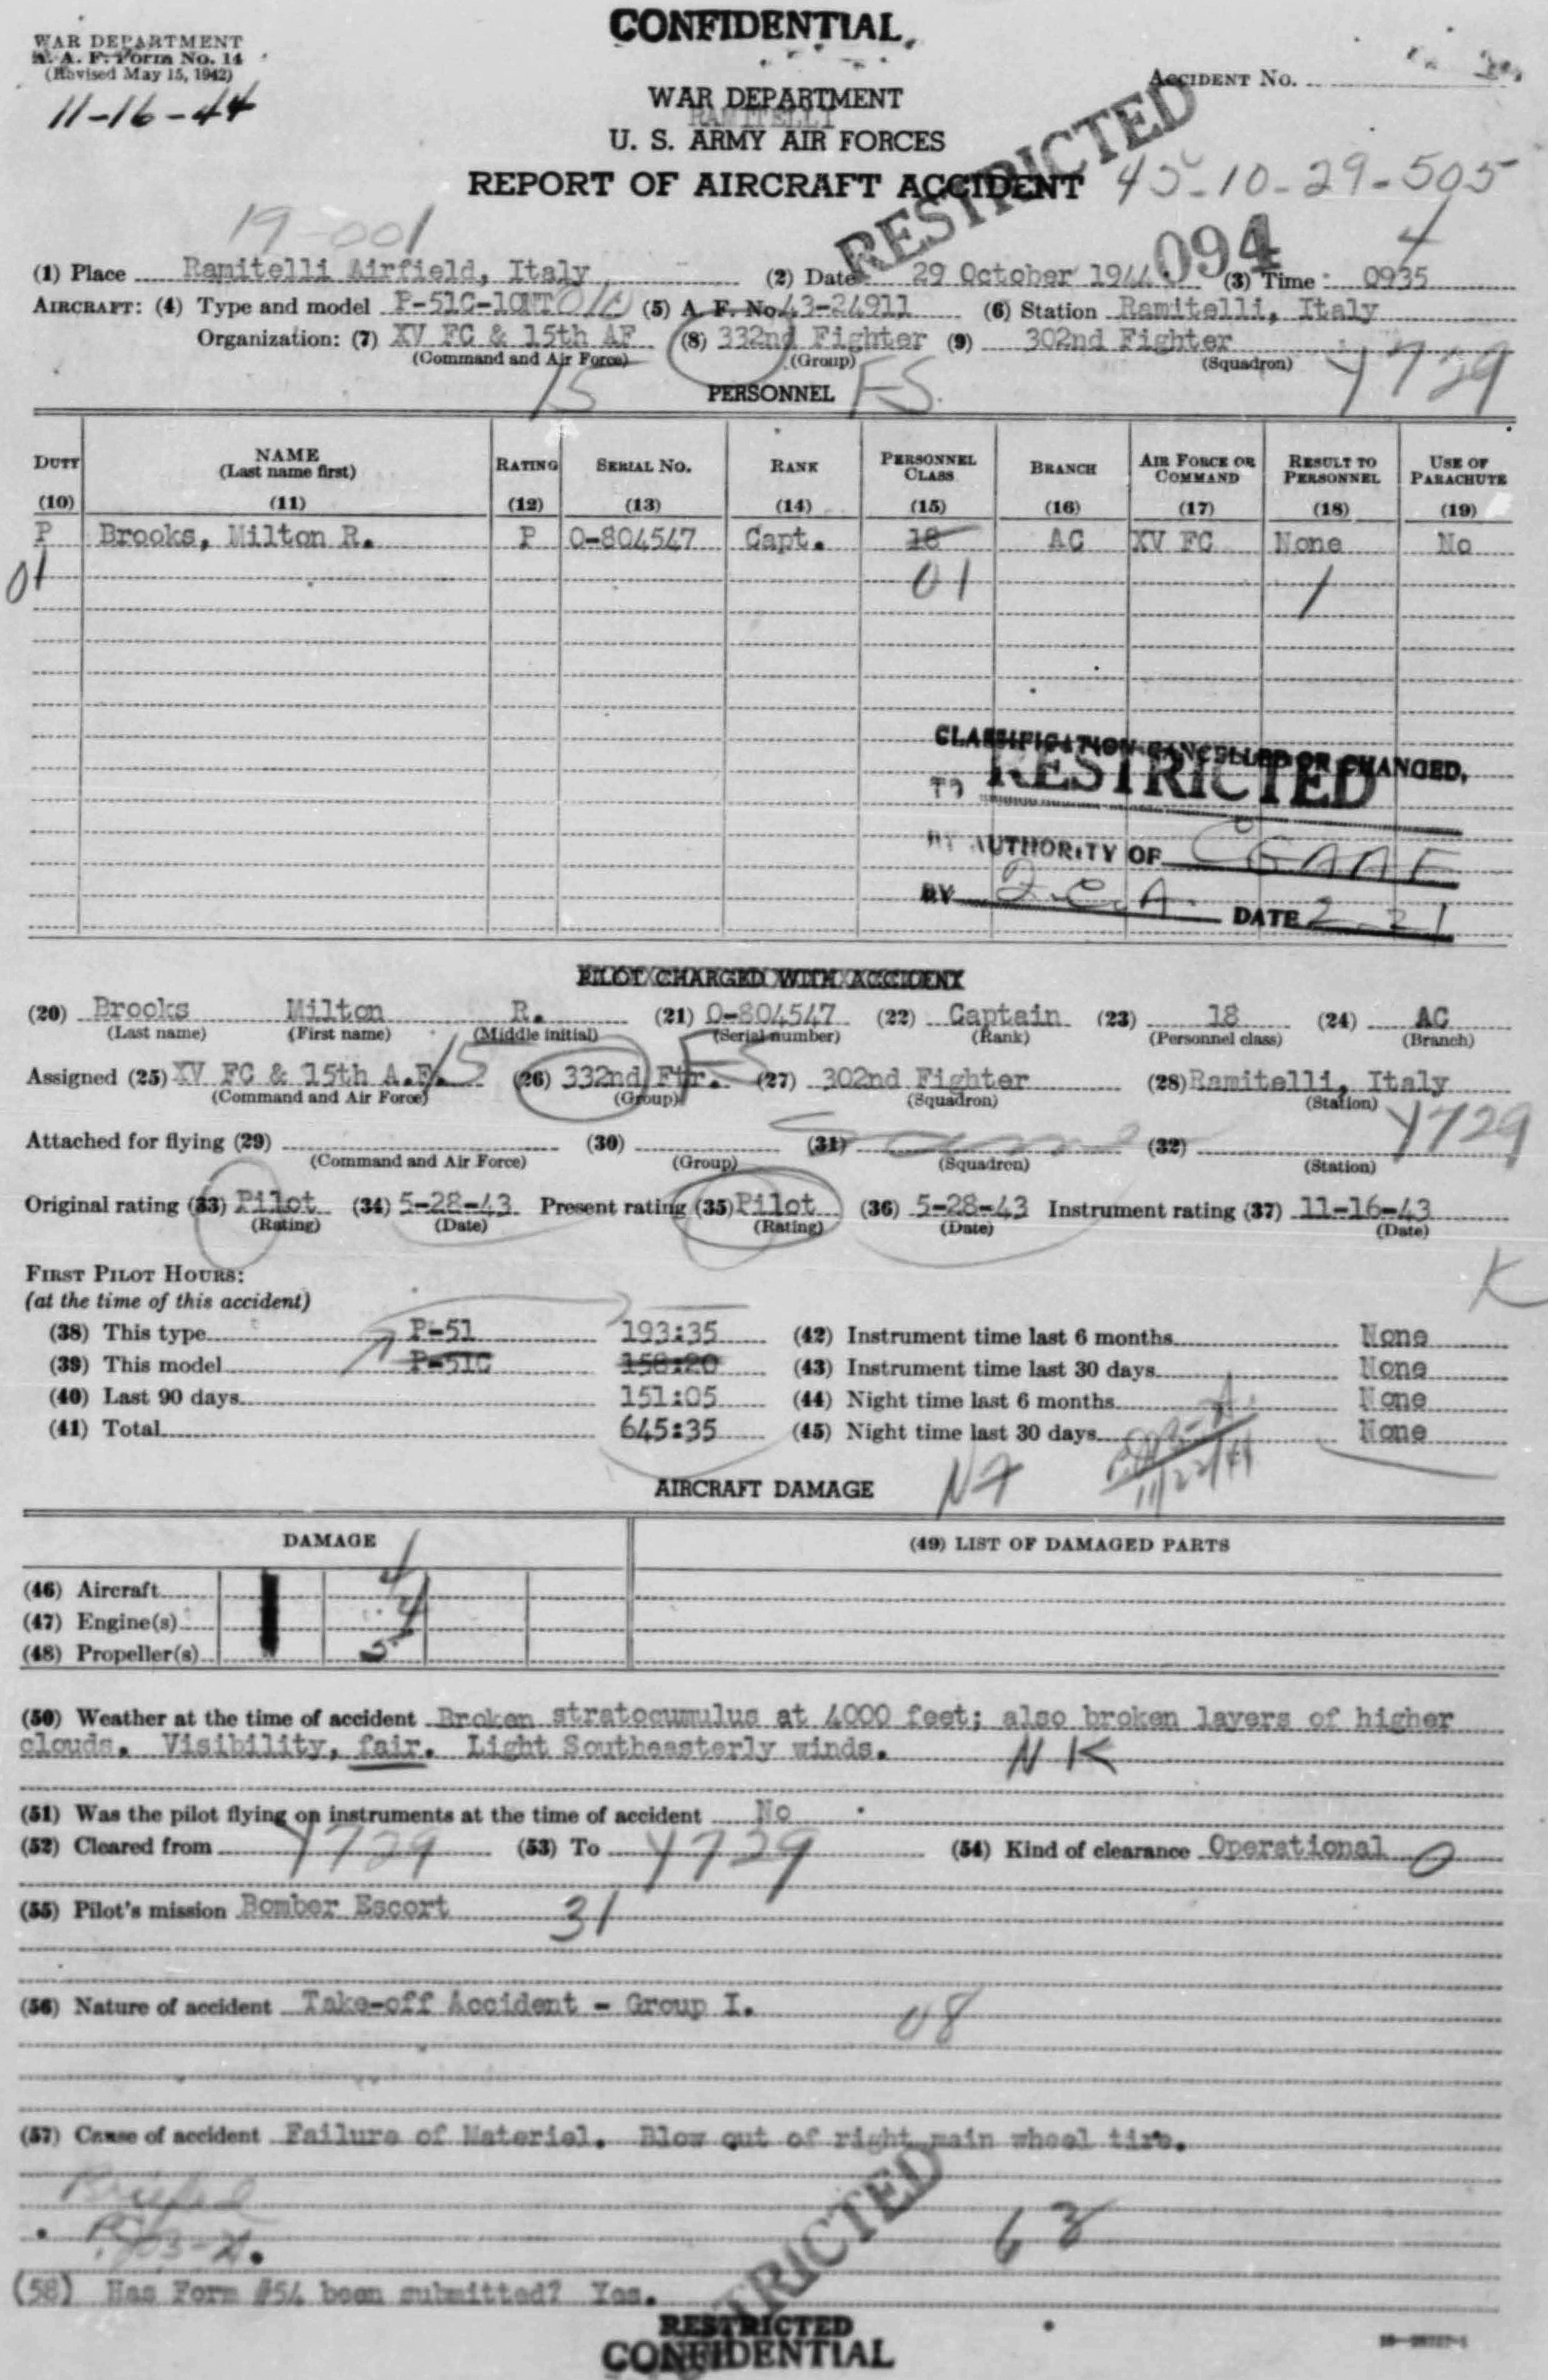 CONFIDENTIAL
WAR DEPARTMENT
A. A. F. Form No. 14
(Revised May 15, 1942)
11-16-44
ACCIDENT No.
WAR DEPARTMENT
RAMITELLI
U. S. ARMY AIR FORCES
REPORT OF AIRCRAFT ACCIDENT 45-10-29-505
RESTRICTED
19-001
094 4
(1) Place Ramitelli Airfield, Italy (2) Date 29 October 1944 (3) Time 0935
AIRCRAFT: (4) Type and model P-51C-10NT (5) A. F. No. 43-24911 (6) Station Ramitelli, Italy
Organization: (7) XV FC & 15th AF (8) 332nd Fighter (9) 302nd Fighter
(Command and Air Force) (Group) (Squadron)
15 FS Y729
PERSONNEL
DUTY NAME (Last name first) RATING SERIAL No. RANK PERSONNEL CLASS BRANCH AIR FORCE OR COMMAND RESULT TO PERSONNEL USE OF PARACHUTE
(10) (11) (12) (13) (14) (15) (16) (17) (18) (19)
P Brooks, Milton R. P O-804547 Capt. 18 AC XV FC None No
01 01 1
CLASSIFICATION CANCELLED OR CHANGED,
TO RESTRICTED
BY AUTHORITY OF CGAAF
BY DATE 2-21
PILOT CHARGED WITH ACCIDENT
(20) Brooks Milton R. (21) O-804547 (22) Captain (23) 18 (24) AC
(Last name) (First name) (Middle initial) (Serial number) (Rank) (Personnel class) (Branch)
Assigned (25) XV FC & 15th A.F. 15 (26) 332nd Ftr. FS (27) 302nd Fighter (28) Ramitelli, Italy
(Command and Air Force) (Group) (Squadron) (Station)
Y729
Attached for flying (29) (30) (31) Same (32)
(Command and Air Force) (Group) (Squadron) (Station)
Original rating (33) Pilot (34) 5-28-43 Present rating (35) Pilot (36) 5-28-43 Instrument rating (37) 11-16-43
(Rating) (Date) (Rating) (Date) (Date)
K
FIRST PILOT HOURS:
(at the time of this accident)
(38) This type P-51 193:35 (42) Instrument time last 6 months None
(39) This model P-51C 158:20 (43) Instrument time last 30 days None
(40) Last 90 days 151:05 (44) Night time last 6 months None
(41) Total 645:35 (45) Night time last 30 days None
11/22/44
AIRCRAFT DAMAGE
DAMAGE (49) LIST OF DAMAGED PARTS
(46) Aircraft 4
(47) Engine(s) 4
(48) Propeller(s) 5
(50) Weather at the time of accident Broken stratocumulus at 4000 feet; also broken layers of higher
clouds. Visibility, fair. Light Southeasterly winds. NK
(51) Was the pilot flying on instruments at the time of accident No
(52) Cleared from Y729 (53) To Y729 (54) Kind of clearance Operational O
(55) Pilot's mission Bomber Escort 31
(56) Nature of accident Take-off Accident - Group I. 08
(57) Cause of accident Failure of Materiel. Blow out of right main wheel tire.
RESTRICTED
63
(58) Has Form #54 been submitted? Yes.
RESTRICTED
CONFIDENTIAL